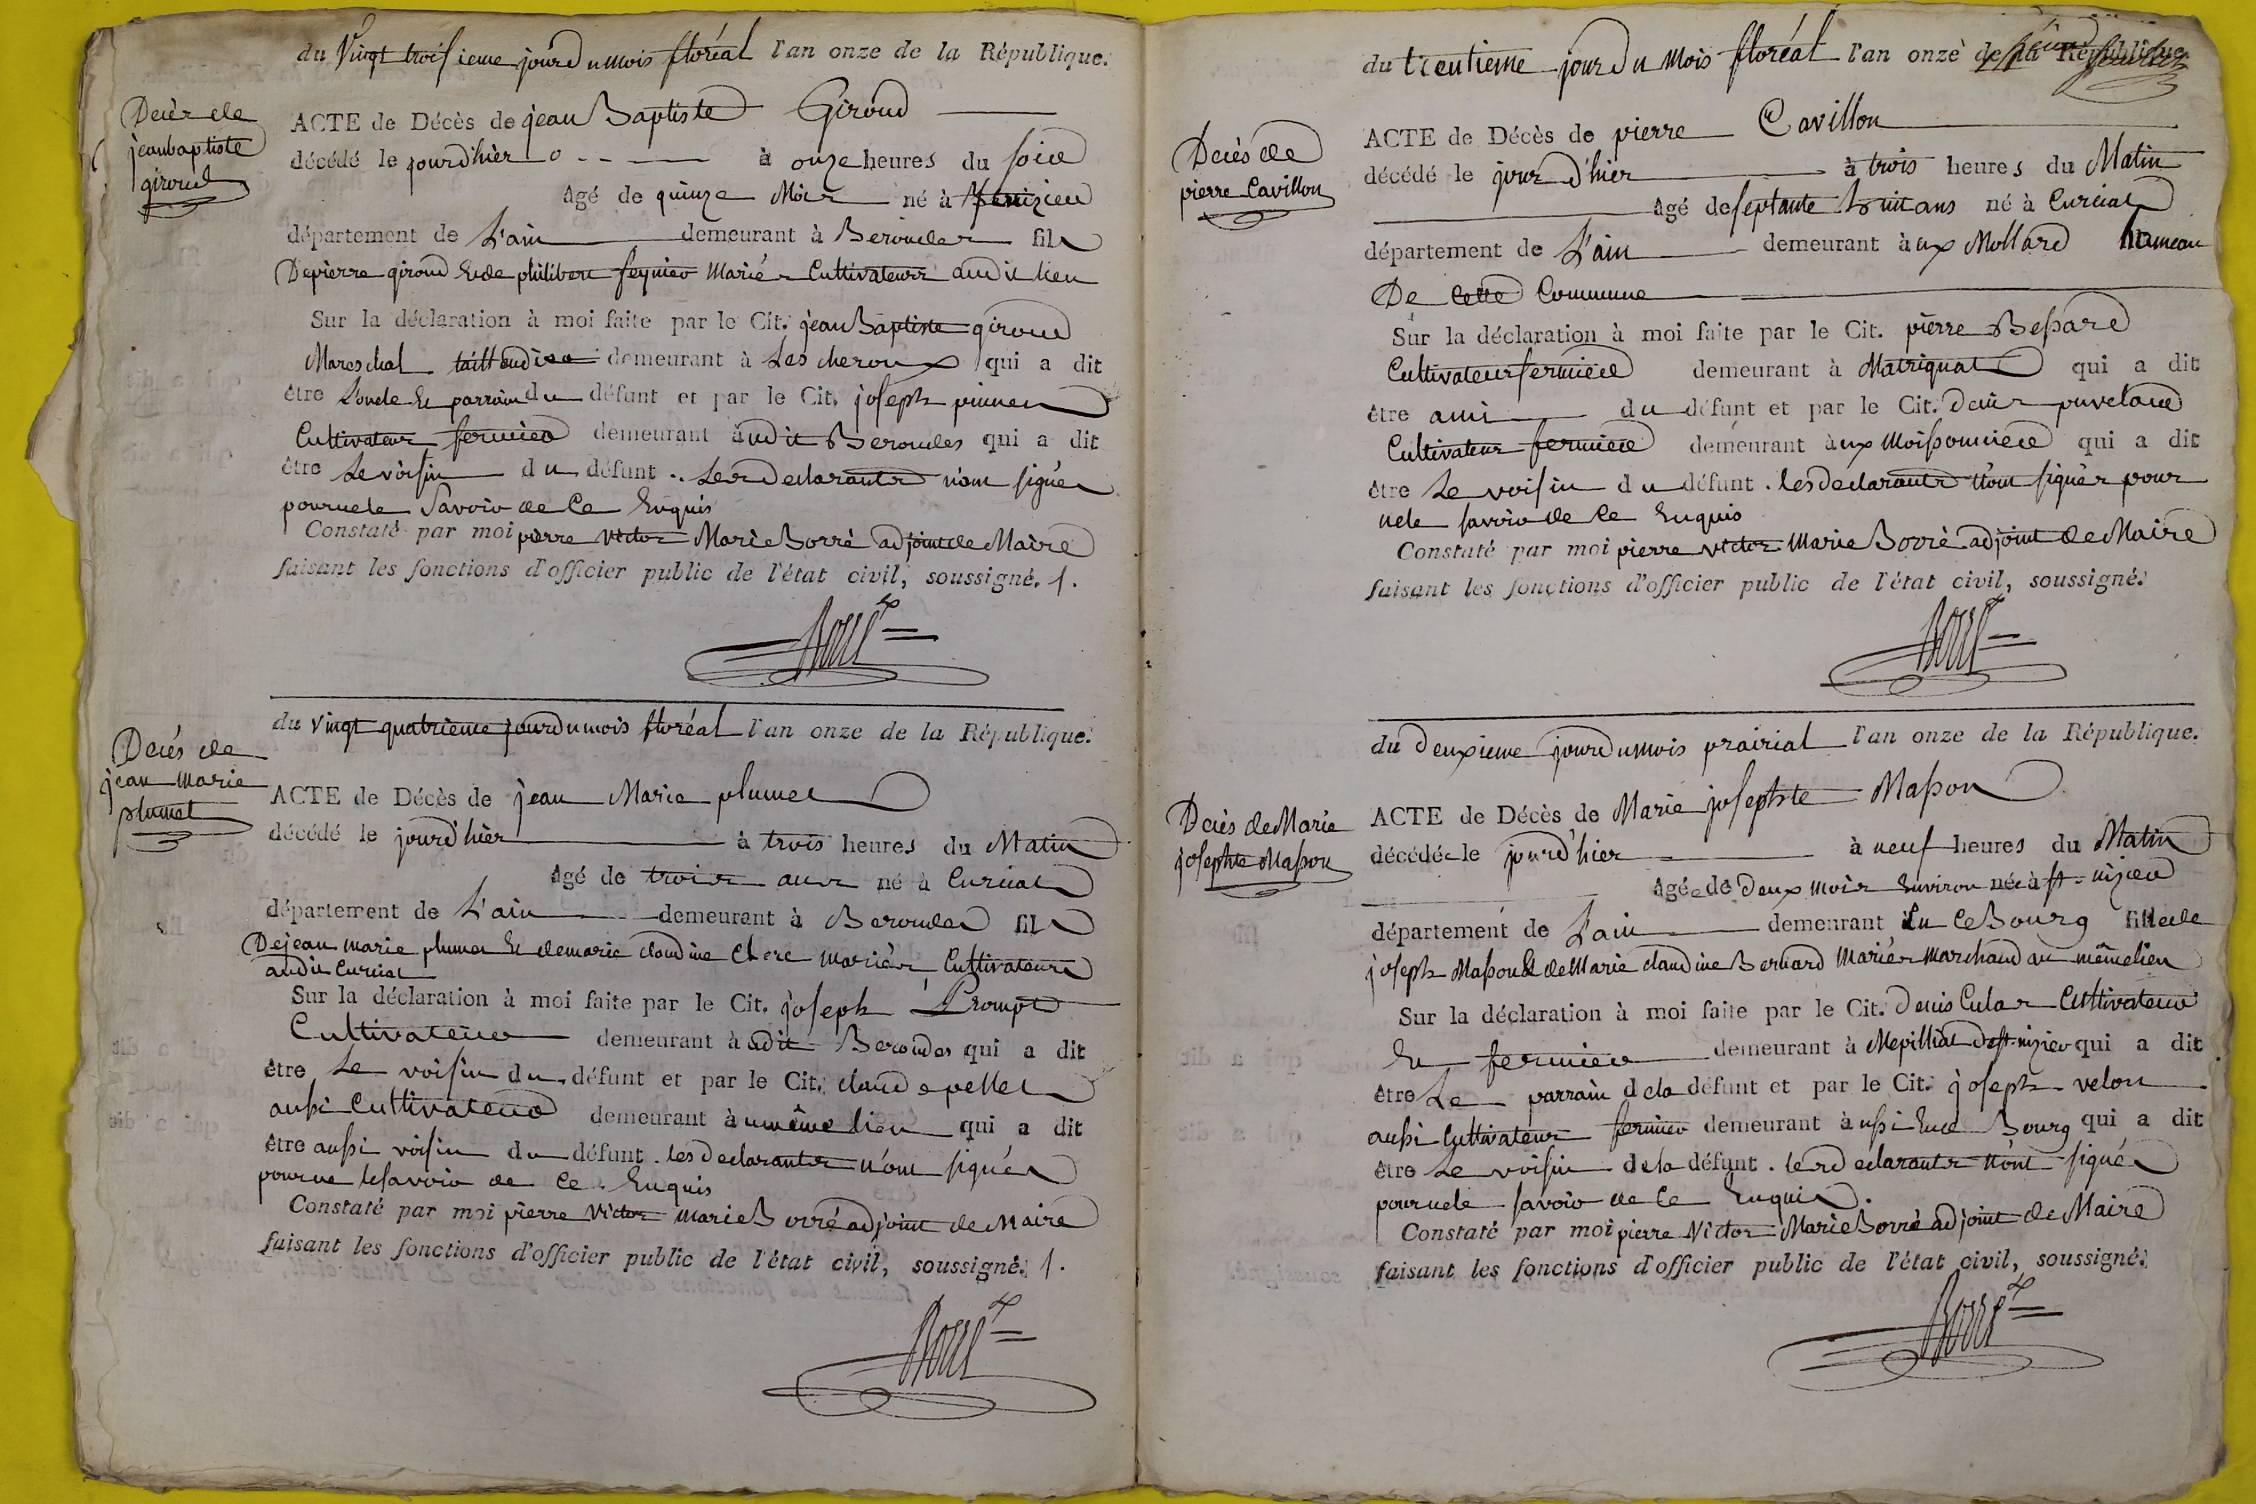 du Vingt troisieme jour du mois floréal l'an onze de la République.
Decès de
jean baptiste
giroud
ACTE de Décès de jean Baptiste Giroud
décédé le jourd'hièr à onze heures du soir
âgé de quinze Mois né à
département de L'ain demeurant à Beroudes fils
De pierre giroud Et de philiberte feynier Mariés Cultivateurs audit lieu
Sur la déclaration à moi faite par le Cit. jean Baptiste giroud
Mareschal taillandier demeurant à Lescheroux qui a dit
être L'oncle Et parrain du défunt et par le Cit. joseph
Cultivateur fermier demeurant audit Beroudes qui a dit
être Le voisin du défunt . Les Declarants n'ont signés
pour ne le Savoir de Ce Enquis
Constaté par moi pierre victor Marie Borré adjoint de Maire
faisant les fonctions d'officier public de l'état civil, soussigné. /.
Borré
du vingt quatrieme jour du mois floréal l'an onze de la République.
Decés de
jean marie
plumet
ACTE de Décès de jean Marie plumet
décédé le jourd'hièr à trois heures du Matin
âgé de trois ans né à Curciat
département de L'ain demeurant à Beroudes fils
De jean marie plumet Et de marie claudine Clerc mariés Cultivateurs
audit Curciat
Sur la déclaration à moi faite par le Cit. joseph Prompt
Cultivateur demeurant à udit Beroudes qui a dit
être Le voisin du défunt et par le Cit. claude pellet
aussi Cultivateur demeurant à u même lieu qui a dit
être aussi voisin du défunt . les Declarants n'ont signés
pour ne le savoir de Ce Enquis
Constaté par moi pierre victor marie Borré adjoint de Maire
faisant les fonctions d'officier public de l'état civil, soussigné. /.
Borré
du trentieme jour du Mois floréal l'an onze de la République
Decès de
pierre Cavillon
ACTE de Décès de pierre Cavillon
décédé le jour d'hier à trois heures du Matin
âgé de septante huit ans né à Curciat
département de L'ain demeurant à ux Mollard hameau
De Cette Commune
Sur la déclaration à moi faite par le Cit. pierre Bessard
Cultivateur fermier demeurant à Matrignat qui a dit
être ami du défunt et par le Cit. Denis puveland
Cultivateur fermier demeurant à ux Moissonnier qui a dit
être Le voisin du défunt . les declarants n'ont signés pour
ne le savoir de Ce Enquis
Constaté par moi pierre victor Marie Borré adjoint de Maire
faisant les fonctions d'officier public de l'état civil, soussigné.
Borré
du Deuxieme jour du mois prairial l'an onze de la République.
Decès de Marie
josephte Masson
ACTE de Décès de Marie josephte Masson
décédée le jourd'hier à neuf heures du Matin
âgée de Deux mois Environ née à st. nizier
département de L'ain demeurant En Ce Bourg fille de
joseph Masson Et de Marie claudine Bernard Mariés Marchand au même lieu
Sur la déclaration à moi faite par le Cit. Denis Cular Cultivateur
Et fermier demeurant à Mepilliat De st. nizier qui a dit
être Le parrain de la défunt et par le Cit. joseph velon
aussi Cultivateur fermier demeurant à ussi En Ce Bourg qui a dit
être Le voisin de la défunt . les declarants n'ont signés
pour ne le savoir de Ce Enquis.
Constaté par moi pierre Victor Marie Borré adjoint de Maire
faisant les fonctions d'officier public de l'état civil, soussigné.
Borré